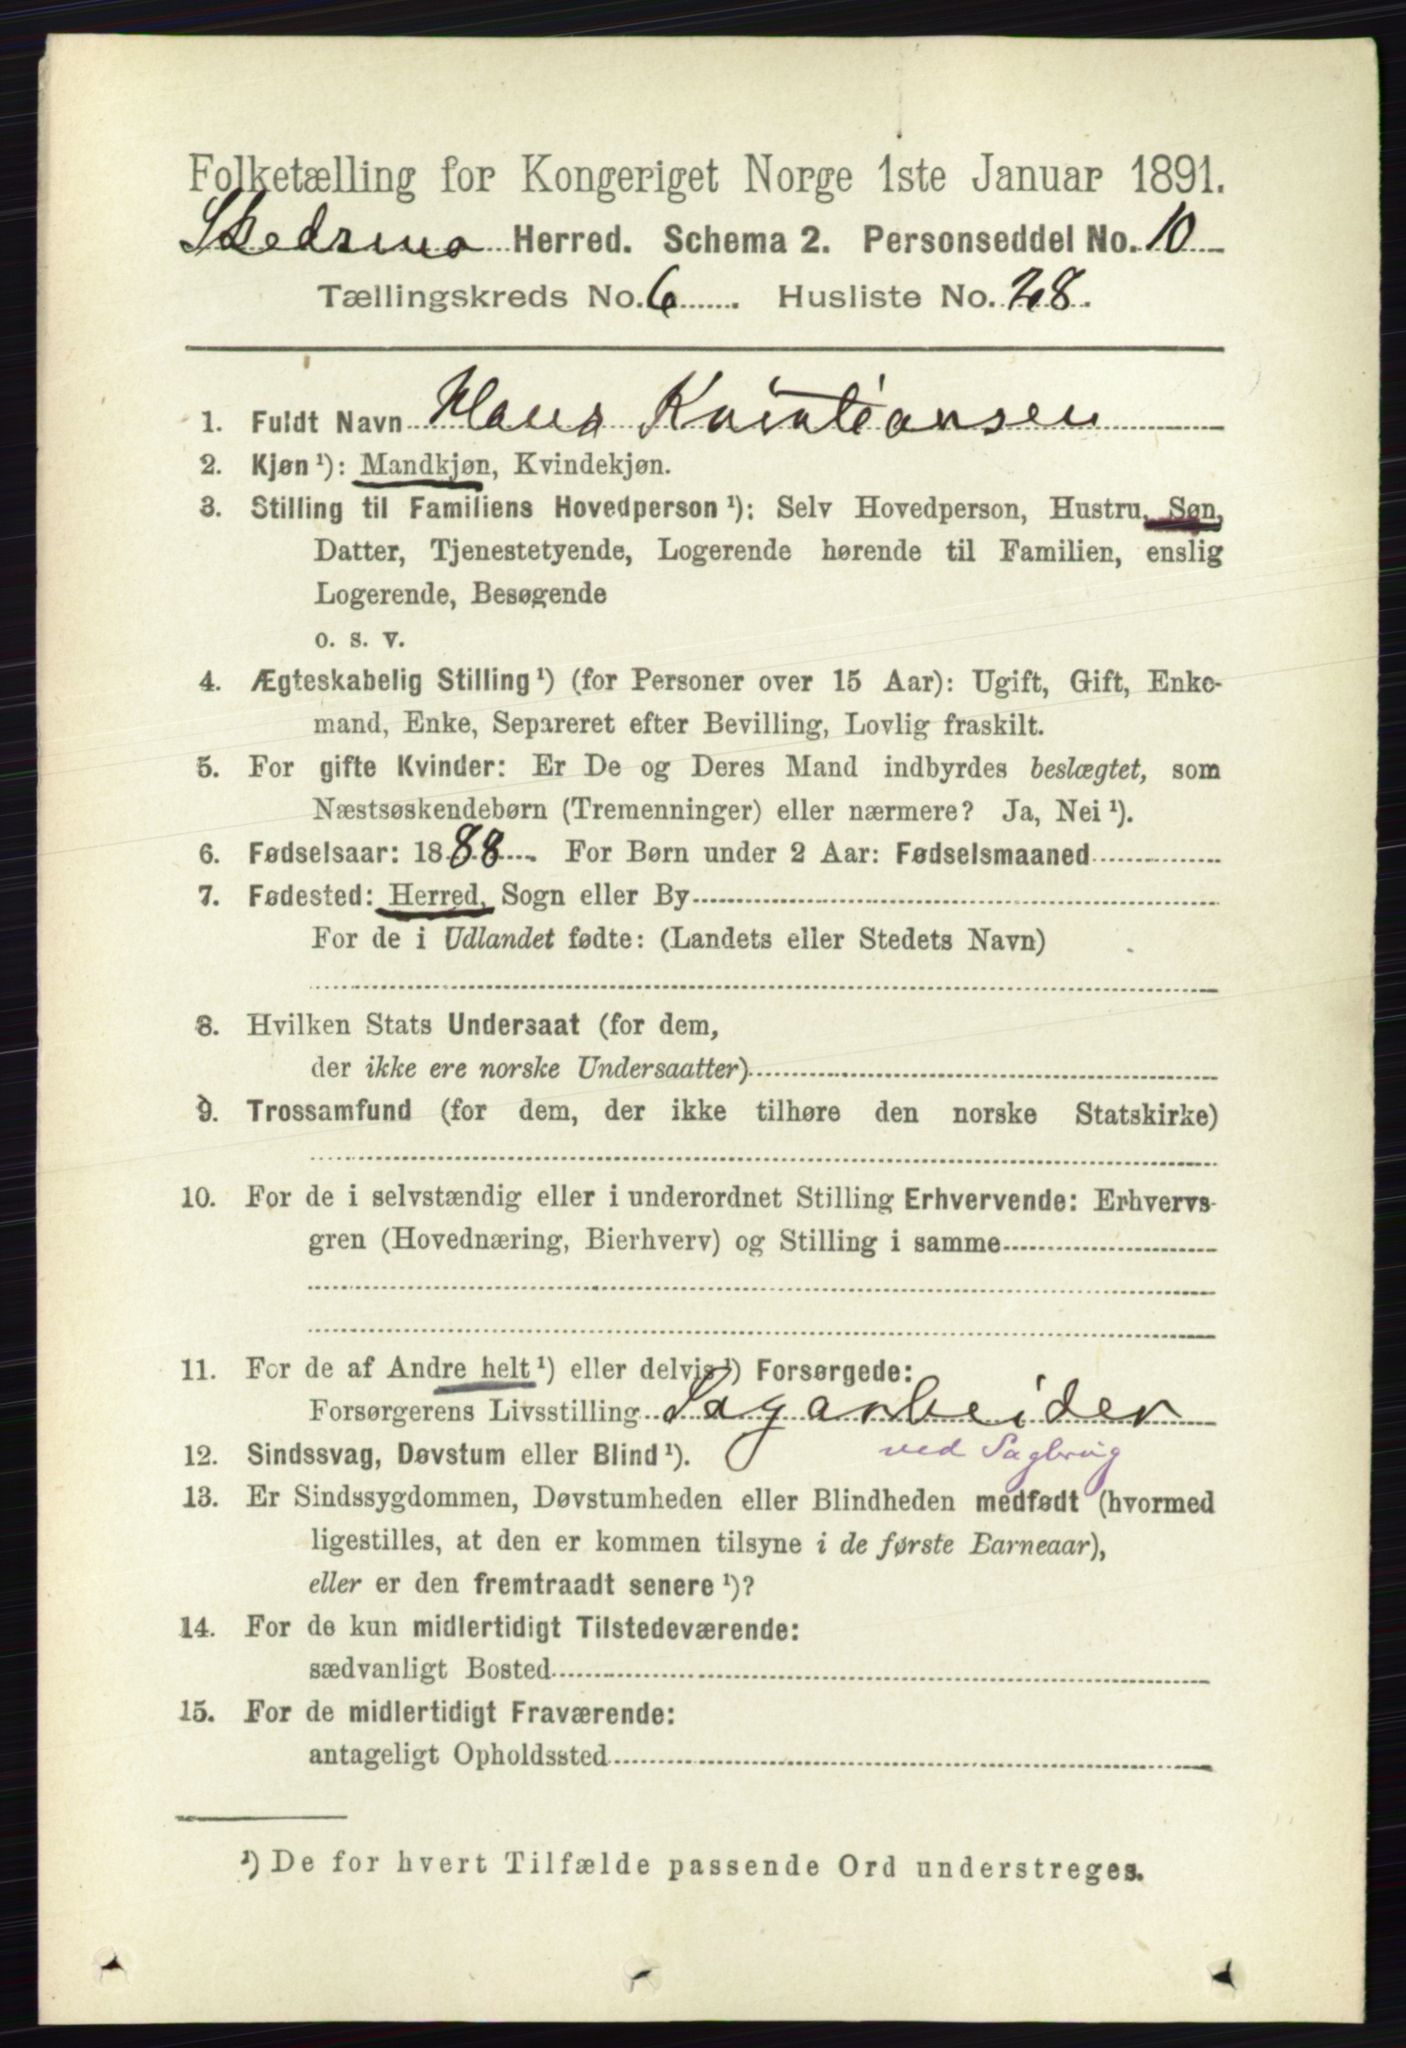 Folketælling for Kongeriget Norge 1ste Januar 1891.
Skedsmo Herred. Schema 2. Personseddel No. 10
Tællingskreds No. 6 Husliste No. 28.
1. Fuldt Navn Hans Kristiansen
2. Kjøn ¹): Mandkjøn, Kvindekjøn.
3. Stilling til Familiens Hovedperson ¹): Selv Hovedperson, Hustru, Søn,
Datter, Tjenestetyende, Logerende hørende til Familien, enslig
Logerende, Besøgende
o. s. v.
4. Ægteskabelig Stilling ¹) (for Personer over 15 Aar): Ugift, Gift, Enke-
mand, Enke, Separeret efter Bevilling, Lovlig fraskilt.
5. For gifte Kvinder: Er De og Deres Mand indbyrdes beslægtet, som
Næstsøskendebørn (Tremenninger) eller nærmere? Ja, Nei ¹).
6. Fødselsaar: 1888. For Børn under 2 Aar: Fødselsmaaned
7. Fødested: Herred, Sogn eller By
For de i Udlandet fødte: (Landets eller Stedets Navn)
8. Hvilken Stats Undersaat (for dem,
der ikke ere norske Undersaatter)
9. Trossamfund (for dem, der ikke tilhøre den norske Statskirke)
10. For de i selvstændig eller i underordnet Stilling Erhvervende: Erhvervs-
gren (Hovednæring, Bierhverv) og Stilling i samme
11. For de af Andre helt ¹) eller delvis ¹) Forsørgede:
Forsørgerens Livsstilling Sagarbeider
ved Sagbrug
12. Sindssvag, Døvstum eller Blind ¹).
13. Er Sindssygdommen, Døvstumheden eller Blindheden medfødt (hvormed
ligestilles, at den er kommen tilsyne i de første Barneaar),
eller er den fremtraadt senere ¹)?
14. For de kun midlertidigt Tilstedeværende:
sædvanligt Bosted
15. For de midlertidigt Fraværende:
antageligt Opholdssted
¹) De for hvert Tilfælde passende Ord understreges.